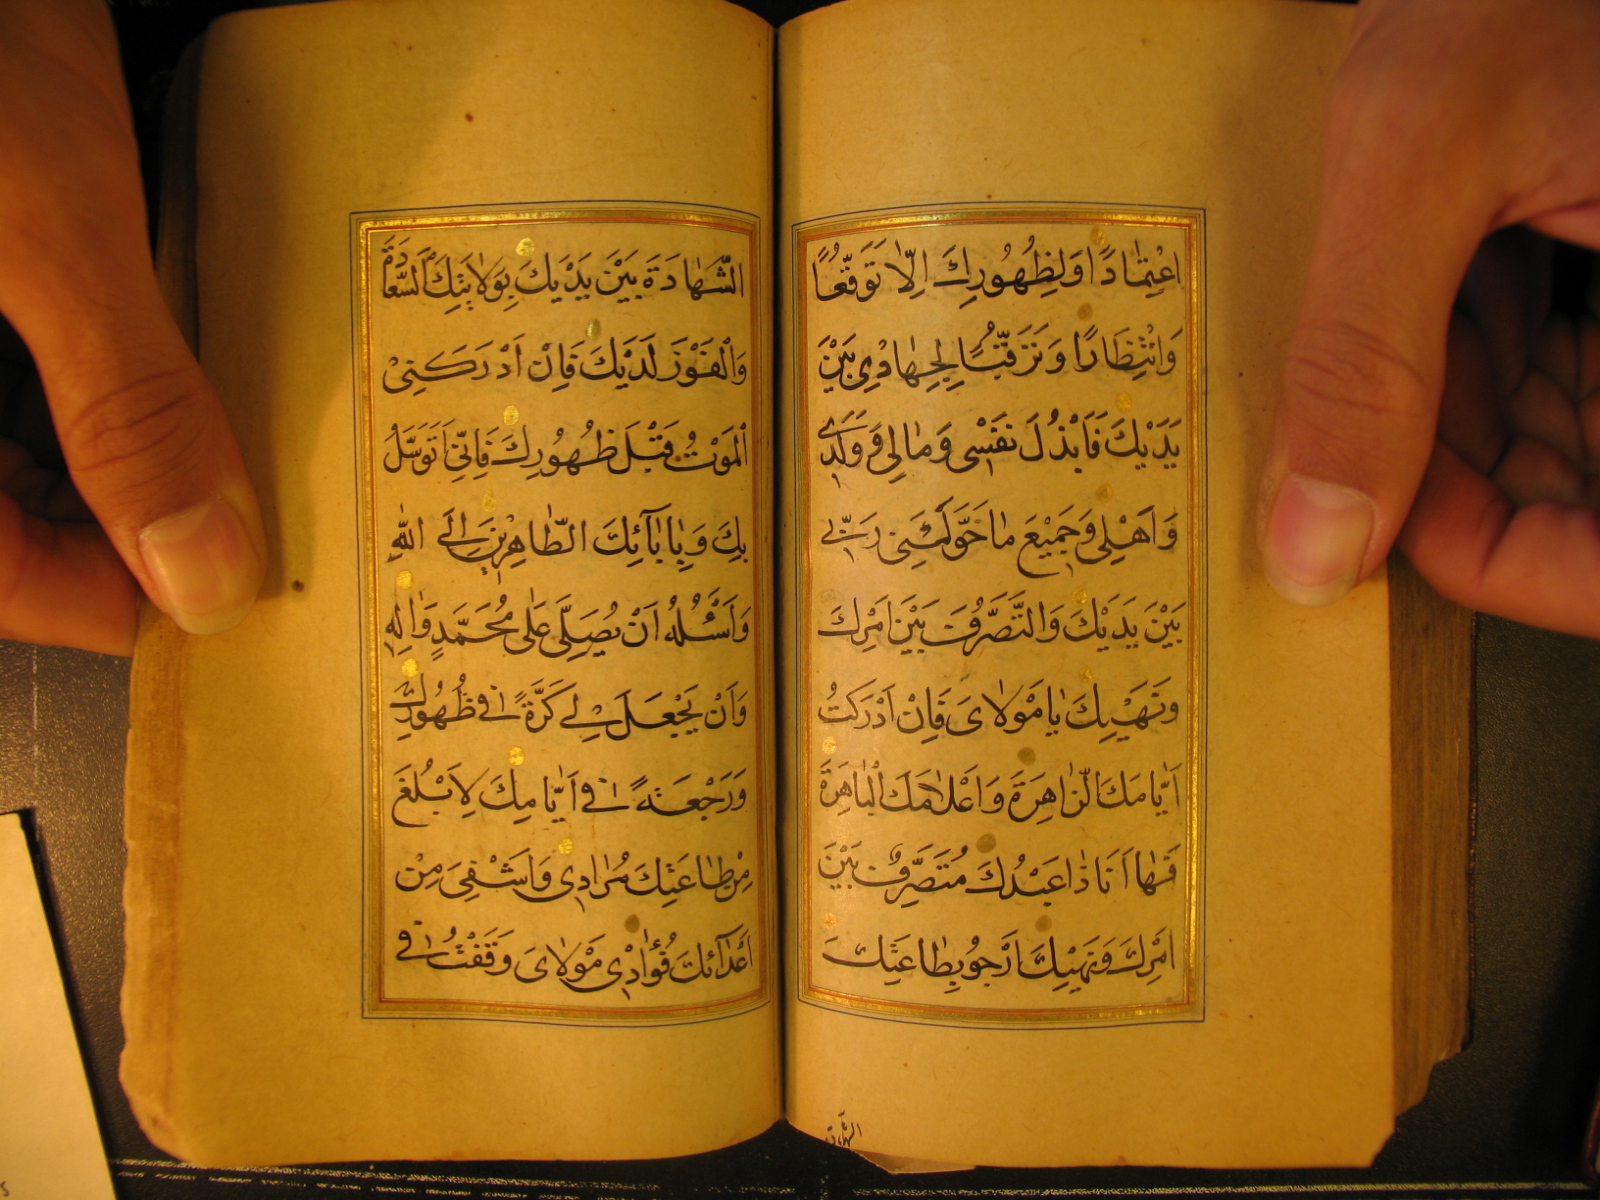 اعْتِمَادًا وَلِظُهُورِكَ اِلَّا تَوَقُّعًا
وَانْتِظَارًا وَتَرَقُّبًا لِجِهَادِى بَيْنَ
يَدَيْكَ فَابْذُلَ نَفْسِى وَمَالِى وَوَلَدِى
وَاَهْلِى وَجَمِيْعَ مَا خَوَّلَنِى رَبِّى
بَيْنَ يَدَيْكَ وَالتَّصَرُّفَ بَيْنَ اَمْرِكَ
وَنَهْيِكَ يَا مَوْلَاىَ فَاِنْ اَدْرَكْتُ
اَيَّامَكَ الزَّاهِرَةَ وَاَعْلَامَكَ الْبَاهِرَةَ
فَهَا اَنَا ذَا عَبْدُكَ مُتَصَرِّفٌ بَيْنَ
اَمْرِكَ وَنَهْيِكَ اَرْجُو بِطَاعَتِكَ
الشهادة
الشَّهَادَةَ بَيْنَ يَدَيْكَ بِوَلَايَتِكَ السَّعَادَةَ
وَالْفَوْزَ لَدَيْكَ فَاِنْ اَدْرَكَنِىْ
الْمَوْتُ قَبْلَ ظُهُورِكَ فَاِنِّىْ اَتَوَسَّلُ
بِكَ وَبِاٰبَآئِكَ الطَّاهِرِيْنَ اِلَى اللّٰهِ
وَاَسْئَلُهُ اَنْ يُصَلِّىَ عَلٰى مُحَمَّدٍ وَاٰلِهِ
وَاَنْ يَجْعَلَ لِىْ كَرَّةً فِى ظُهُورِكَ
وَرَجْعَةً فِى اَيَّامِكَ لِاَبْلُغَ
مِنْ طَاعَتِكَ مُرَادِى وَاَشْفِىَ مِنْ
اَعْدَآئِكَ فُؤَادِى مَوْلَاىَ وَقَفْتُ فِى